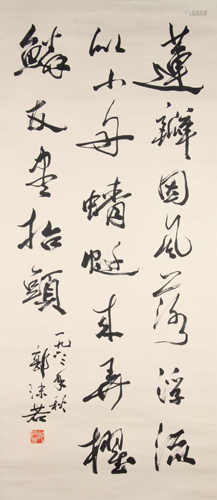 蓮瓣因風落浮流
似小舟蜻蜓来弄櫂
鱗友盡抬頭
一九六二年秋
郭沫若